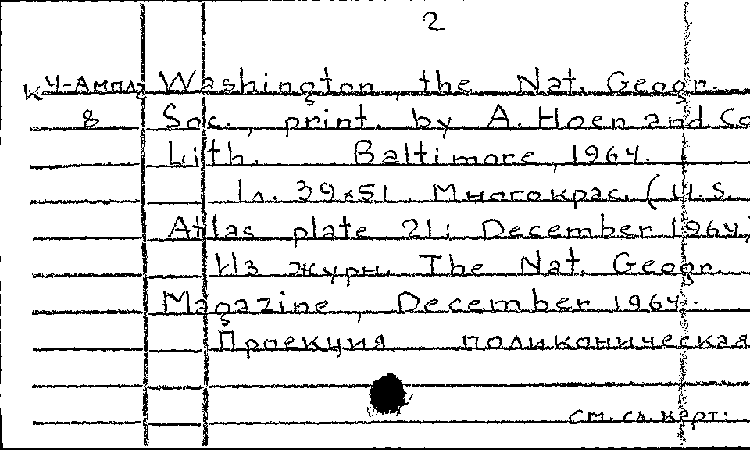 2
К У-Ампл. Washington, the Nat. Geogr.
8 Soc., print. by A. Hoen and Co
Lith. Baltimore, 1964.
1 л. 39х51. Многокрас. (U.S.
Atlas plate 21; December 1964)
Из журн. The Nat. Geogr.
Magazine, December 1964.
Проекция поликоническая
см. сл. карт: